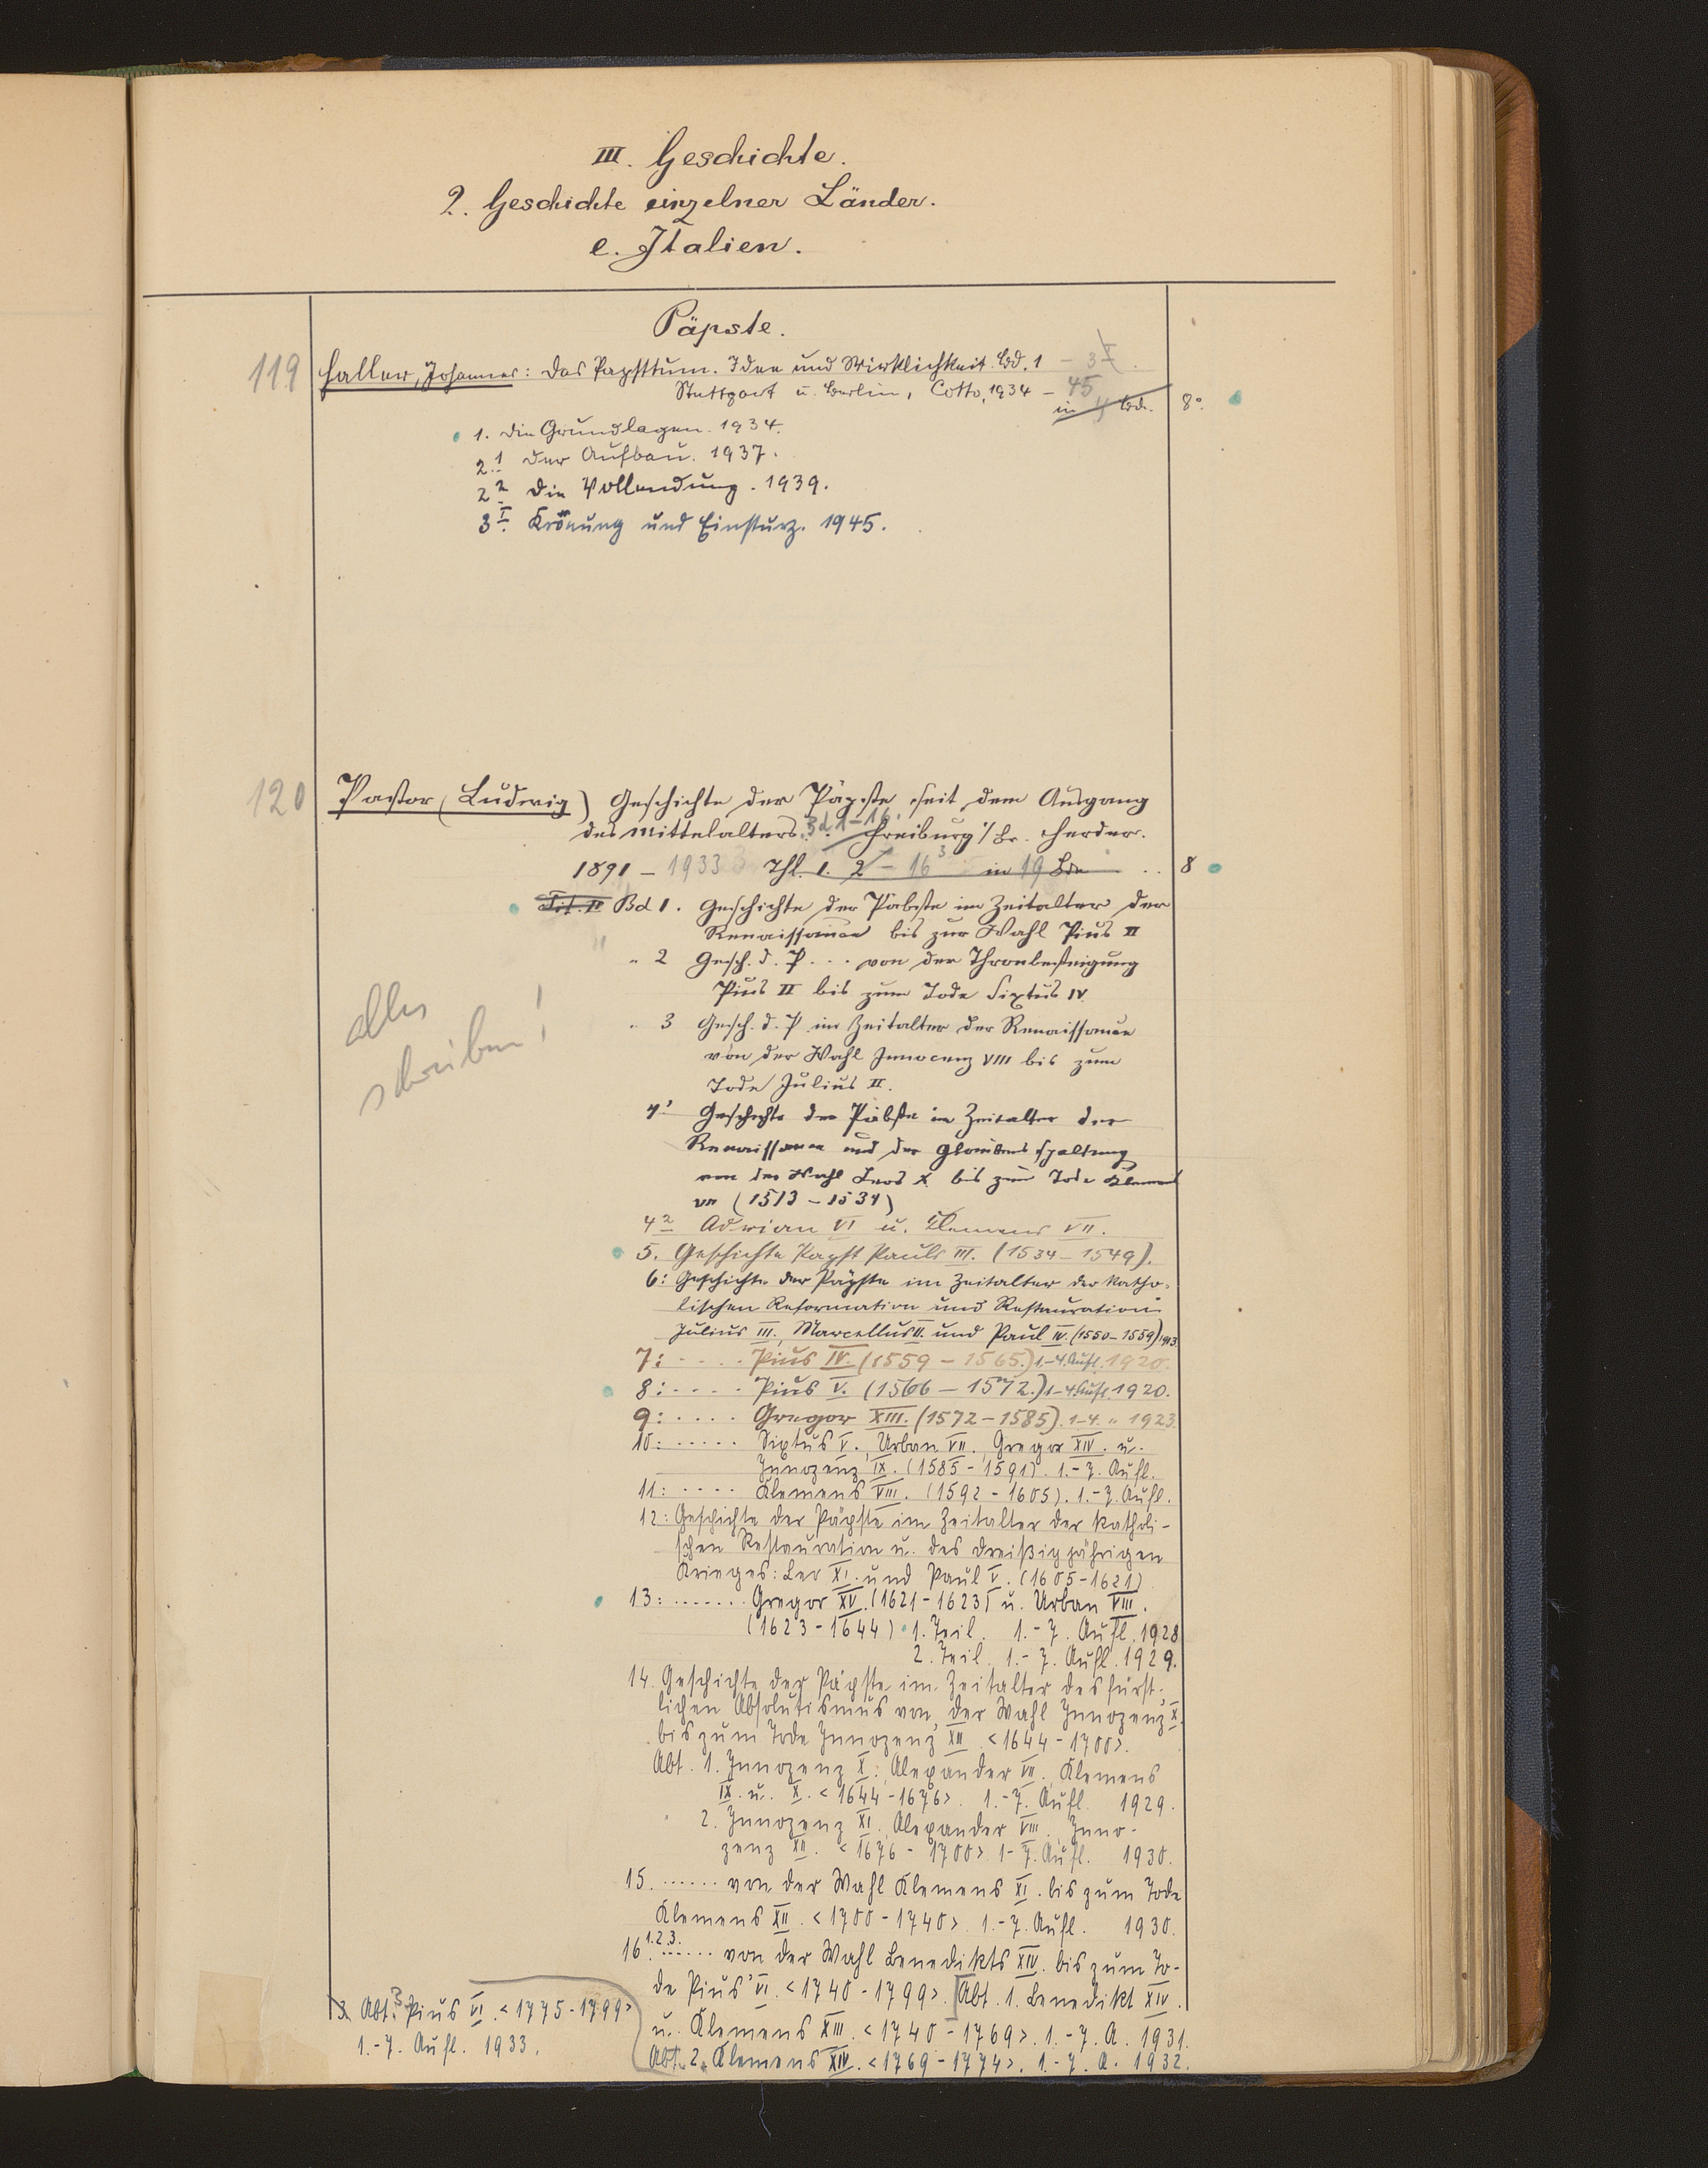 III. Geschichte.
2. Geschichte einzelner Länder.
e. Italien.
Päpste.
119 Haller, Johannes: Das Papsttum. Idee und Wirklichkeit. Bd. 1 – 3 I.
Stuttgart u. Berlin, Cotta, 1934 – 45
in 4 Bde. 8°.
1. Die Grundlagen. 1934.
2.1 Der Aufbau. 1937.
2 2 Die Vollendung. 1939.
3 I. Krönung und Einsturz. 1945.
120 Pastor (Ludwig) Geschichte der Päpste seit dem Ausgang
des Mittelalters. Bd 1–16. Freiburg i/Br. Herder.
1891 – 1933 Thl. 1. 2 – 16 3 in 19 Bde .. 8
Tit. II Bd 1. Geschichte der Päbste im Zeitalter der
Renaissance bis zur Wahl Pius II
" 2 Gesch. d. P. . . . von der Thronbesteigung
Pius II bis zum Tode Sixtus IV.
" 3 Gesch. d. P im Zeitalter der Renaissance
von der Wahl Innocenz VIII bis zum
Tode Julius II.
alles
schreiben!
4 1 Geschichte der Päbste im Zeitalter der
Renaissance und der Glaubensspaltung
von der Wahl Leos X. bis zum Tode Klemens
VII (1513 – 1534)
4 2 Adrian VI u. Klemens VII.
5. Geschichte Papst Pauls III. (1534 – 1549).
6: Geschichte der Päpste im Zeitalter der katho-
lischen Reformation und Restauration:
Julius III., Marcellus II. und Paul IV. (1550–1559) 1913
7: . . . . Pius IV. (1559 – 1565.) 1.–4. Aufl. 1920.
8: . . . . Pius V. (1566 – 1572.) 1–4 Aufl. 1920.
9: . . . . Gregor XIII. (1572 – 1585). 1–4. " 1923.
10: . . . . . Sixtus V., Urban VII., Gregor XIV. u.
Innozenz IX. (1585 - 1591). 1.-7. Aufl.
11: . . . . Klemens VIII. (1592 - 1605). 1.-7. Aufl.
12: Geschichte der Päpste im Zeitalter der katholi-
schen Restauration u. des Dreißigjährigen
Krieges: Leo XI. und Paul V. (1605-1621)
13: . . . . . . . Gregor XV. (1621 - 1623) u. Urban VIII.
(1623 - 1644) 1. Teil. 1.-7. Aufl. 1928
2. Teil. 1.-7. Aufl. 1929.
14. Geschichte der Päpste im Zeitalter des fürst-
lichen Absolutismus von der Wahl Innozenz' X.
bis zum Tode Innozenz' XII. <1644 - 1700>.
Abt. 1. Innozenz X., Alexander VII., Klemens
IX. u. X. <1644 - 1676>. 1.-7. Aufl. 1929.
2. Innozenz XI., Alexander VIII., Inno-
zenz XII. <1676 - 1700> 1-7. Aufl. 1930.
15. . . . . . . von der Wahl Klemens XI. bis zum Tode
Klemens XII. <1700 - 1740>. 1.-7. Aufl. 1930.
16 1.2.3. . . . . . von der Wahl Benedikts XIV. bis zum To-
de Pius' VI. <1740 - 1799>. [Abt. 1. Benedikt XIV.
u. Klemens XIII. <1740 - 1769>. 1.-7. A. 1931.
Abt. 2. Klemens XIV. <1769 - 1774>. 1.-7. A. 1932.
3. Abt. 3. Pius VI. <1775 - 1799>
1.-7. Aufl. 1933.